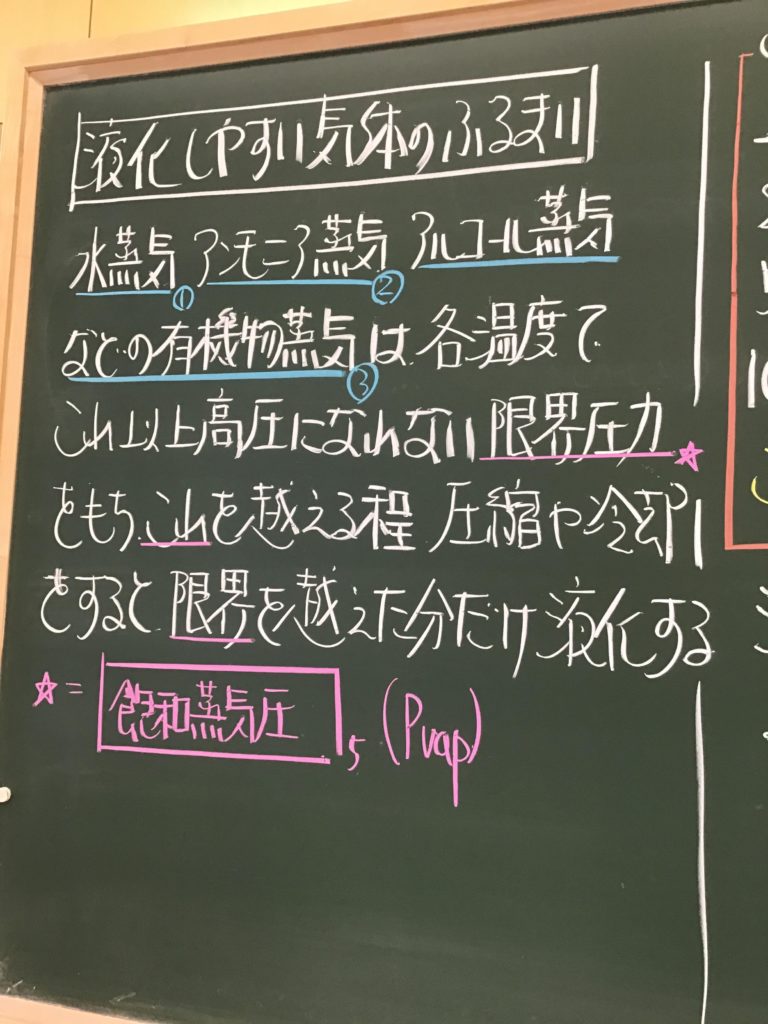 液化しやすい気体のふるまい
水蒸気① アンモニア蒸気② アルコール蒸気
などの有機物蒸気③は各温度で
これ以上高圧になれない限界圧力☆
をもち これを越える程 圧縮や冷却
をすると限界を越えた分だけ液化する
☆=飽和蒸気圧5 (Pvap)
10